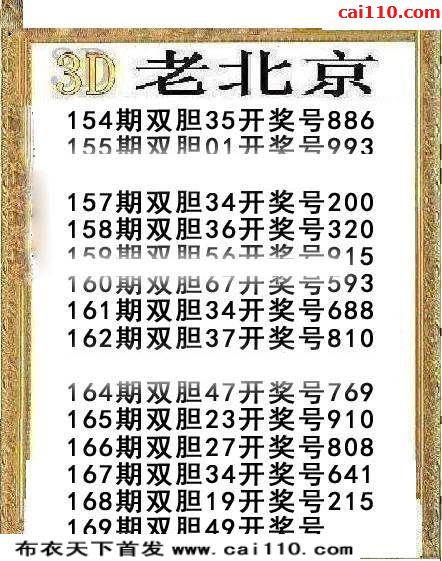 cai110.com
3D 老北京
154期双胆35开奖号886
155期双胆01开奖号993
157期双胆34开奖号200
158期双胆36开奖号320
159期双胆56开奖号915
160期双胆67开奖号593
161期双胆34开奖号688
162期双胆37开奖号810
164期双胆47开奖号769
165期双胆23开奖号910
166期双胆27开奖号808
167期双胆34开奖号641
168期双胆19开奖号215
169期双胆49开奖号
布衣天下首发 www.cai110.com